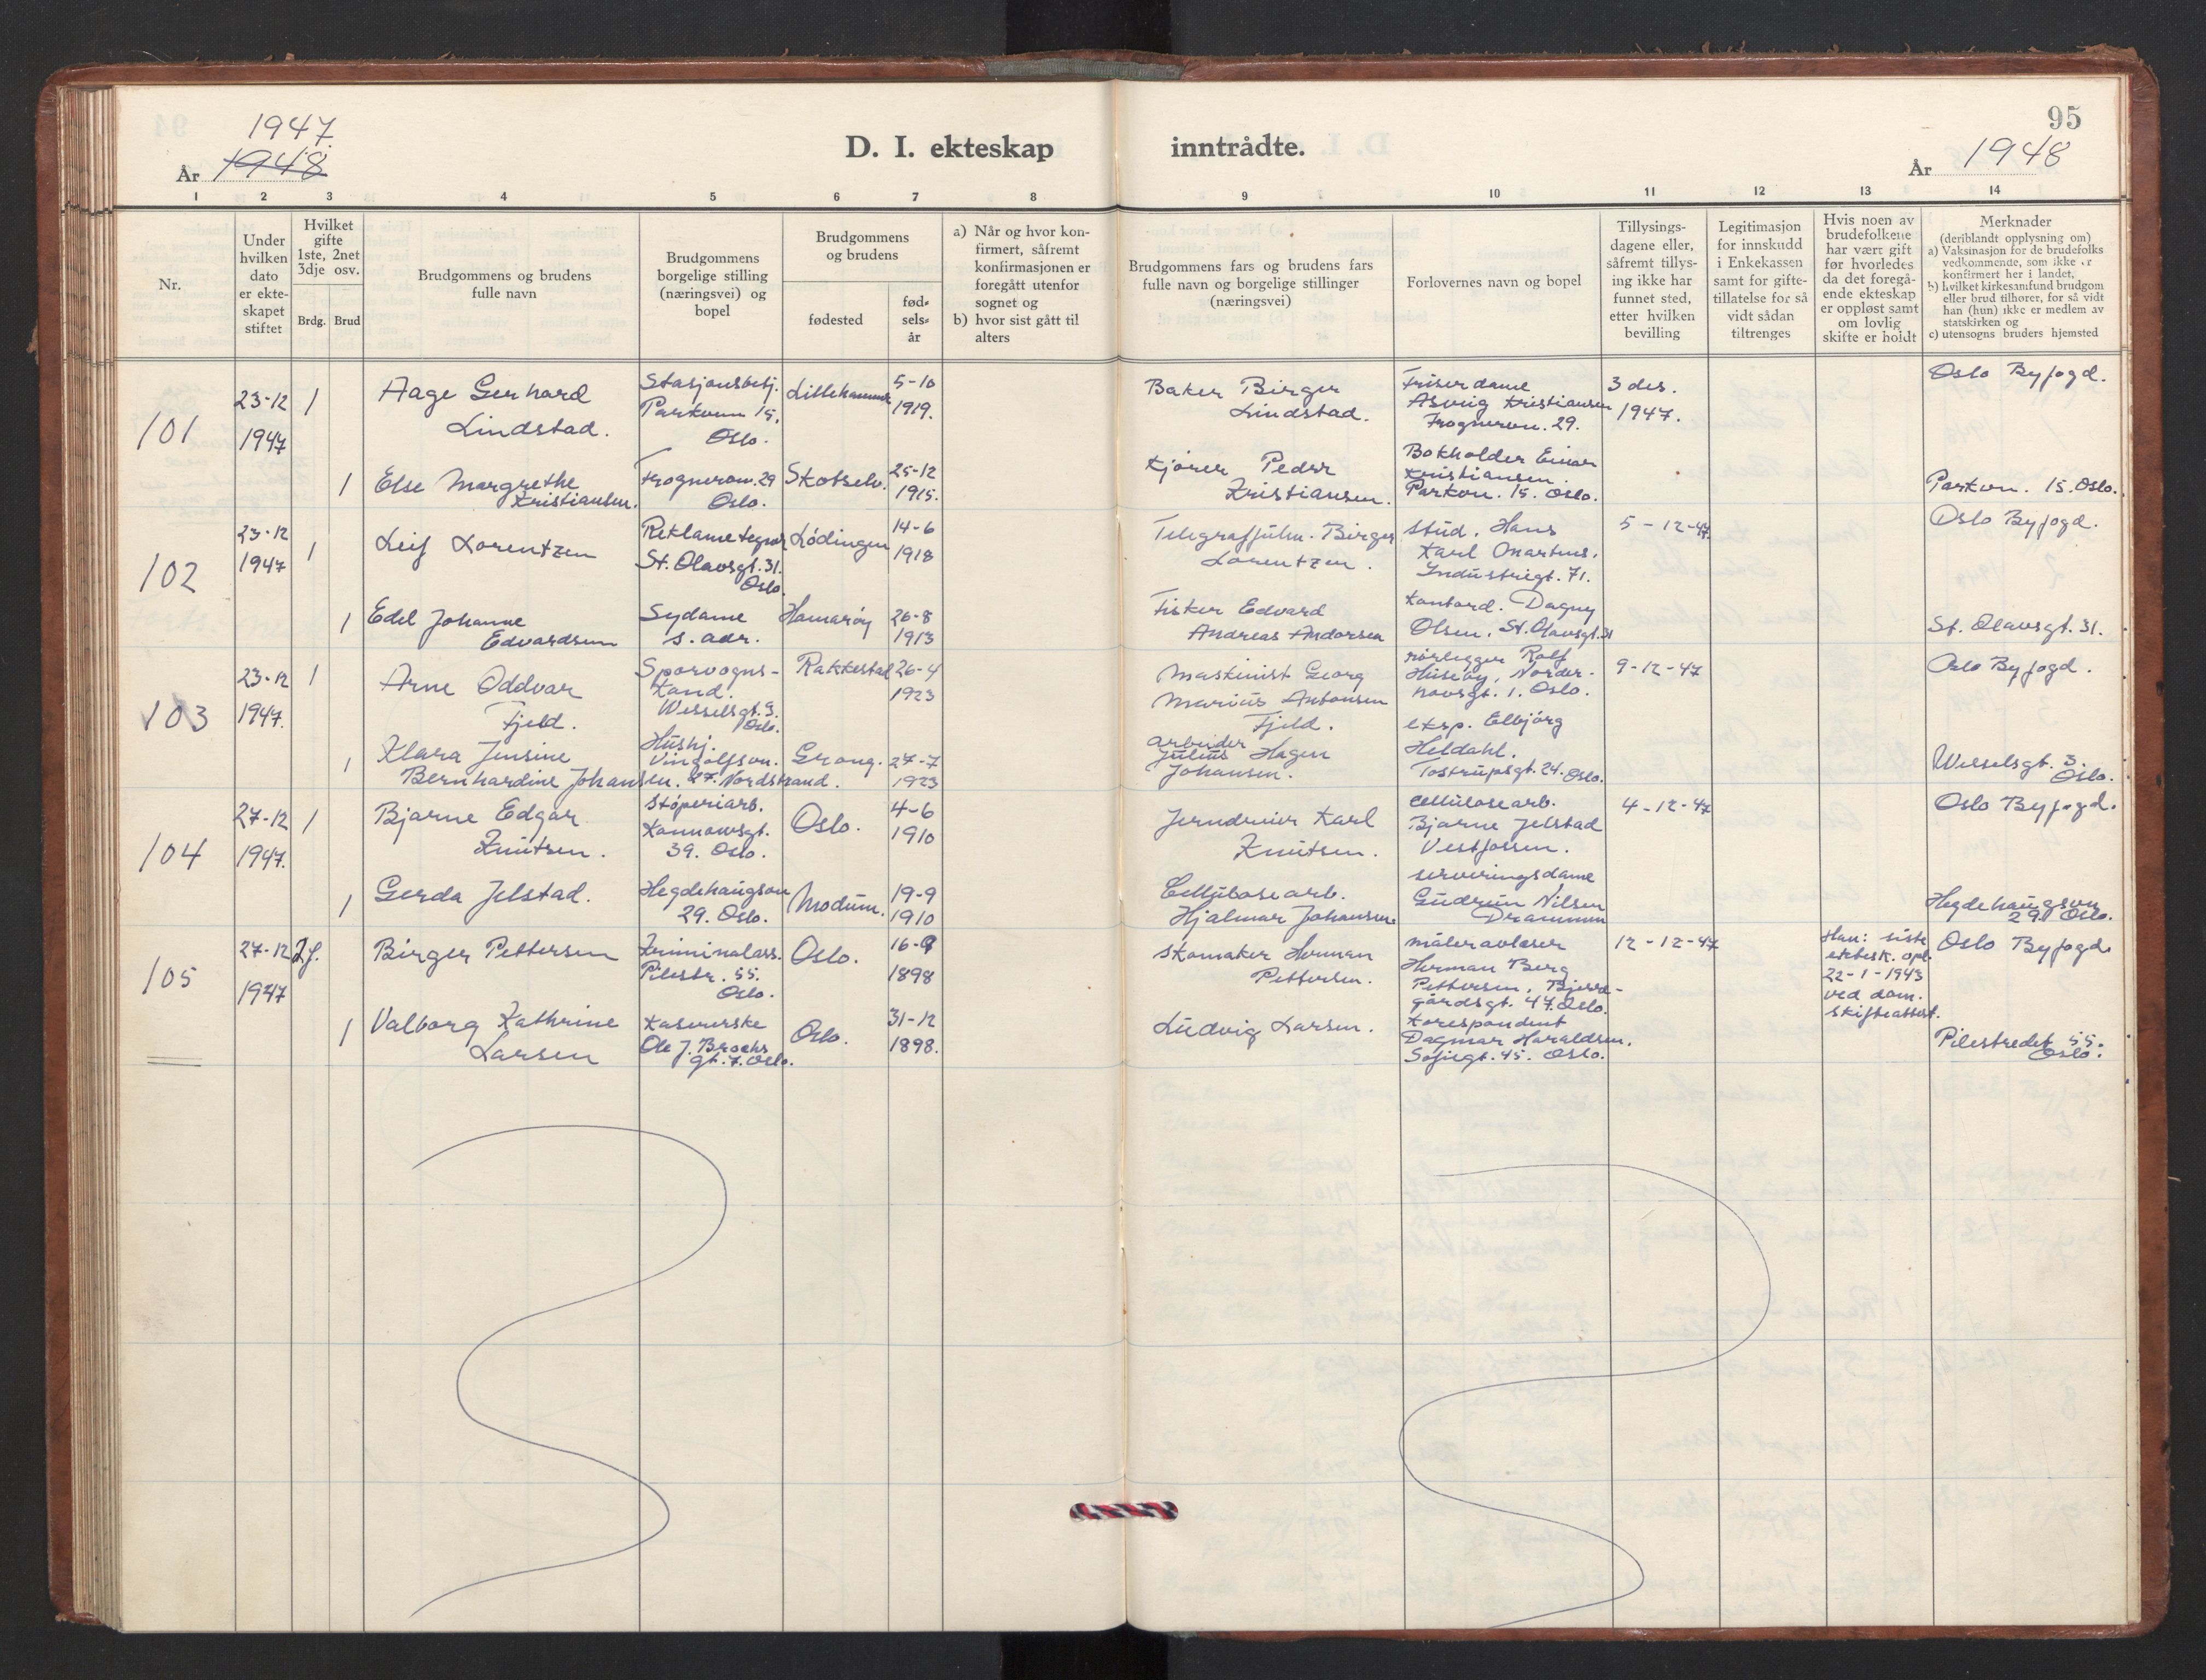 95
1947
År 1948
D. I. ekteskap inntrådte.
År 1948
1 2 3 4 5 6 7 8 9 10 11 12 13 14
Nr.
Under
hvilken
dato
er ekte-
skapet
stiftet
Hvilket
gifte
1ste, 2net
3dje osv.
Brdg. Brud
Brudgommens og brudens
fulle navn
Brudgommens
borgelige stilling
(næringsvei) og
bopel
Brudgommens
og brudens
fødested
fød-
sels-
år
a) Når og hvor kon-
firmert, såfremt
konfirmasjonen er
foregått utenfor
sognet og
b) hvor sist gått til
alters
Brudgommens fars og brudens fars
fulle navn og borgelige stillinger
(næringsvei)
Forlovernes navn og bopel
Tillysings-
dagene eller,
såfremt tillys-
ing ikke har
funnet sted,
etter hvilken
bevilling
Legitimasjon
for innskudd
i Enkekassen
samt for gifte-
tillatelse for så
vidt sådan
tiltrenges
Hvis noen av
brudefolkene
har vært gift
før hvorledes
da det foregå-
ende ekteskap
er oppløst samt
om lovlig
skifte er holdt
Merknader
(deriblandt opplysning om)
a) Vaksinasjon for de brudefolks
vedkommende, som ikke er
konfirmert her i landet,
b) hvilket kirkesamfund brudgom
eller brud tilhører, for så vidt
han (hun) ikke er medlem av
statskirken og
c) utensogns bruders hjemsted
101
23-12
1947
1
Aage Gerhard
Lindstad.
Stasjonsbetj.
Parkvnn 15,
Oslo.
Lillehammer
5-10
1919.
Baker Birger
Lindstad.
Friserdame
Asveig Kristiansen
Frognervn. 29.
3 des.
1947.
Oslo Byfogd.
1
Else Margrethe
Kristiansen.
Frognervn. 29
Oslo.
Skotselv.
25-12
1915.
Kjører Peder
Kristiansen.
Bokholder Einar
Kristiansen.
Parkvn. 15. Oslo.
Parkvn. 15. Oslo.
102
23-12
1947
1
Leif Lorentzen
Reklametegner
St. Olavsgt. 31.
Oslo.
Lødingen
14-6
1918
Telegraffulm. Birger
Lorentzen.
Stud. Hans
Karl Martens.
Industrigt. 71.
5-12-47.
Oslo Byfogd.
1
Edel Johanne
Edvardsen
Sydame
s. adr.
Hamarøy
26-8
1913
Fisker Edvard
Andreas Andorsen
Kontord. Dagny
Olsen, St. Olavsgt. 31
St. Olavsgt. 31.
103
23-12
1947.
1
Arne Oddvar
Fjeld.
Sporvogns-
kond.
Wesselsgt. 3.
Oslo.
Rakkestad
26-4
1923
Maskinist Georg
Marius Antonsen
Fjeld.
rørlegger Rolf
Huseby, Norder-
hovsgt. 1. Oslo.
9-12-47
Oslo Byfogd.
1
Klara Jensine
Bernhardine Johansen.
Hushj.
Vingolfsvn.
27. Nordstrand.
Grong.
27-7
1923
Arbeider
Julius Hagen
Johansen.
eksp. Elbjörg
Heldahl.
Tostrupsgt. 24. Oslo.
Wesselsgt. 3.
Oslo.
104
27-12
1947.
1
Bjarne Edgar
Knutsen.
Støperiarb.
Hannowsgt.
39. Oslo.
Oslo.
4-6
1910
Jerndreier Karl
Knutsen.
Cellulosearb.
Bjarne Jelstad
Vestfossen.
4-12-47
Oslo Byfogd.
1
Gerda Jelstad.
Hegdehaugsvn
29. Oslo.
Modum.
19-9
1910
Cellulosearb.
Hjalmar Johansen.
serveringsdame
Gudrun Nilsen
Drammen
Hegdehaugsvn
29. Oslo.
105
27-12
1947
2 f.
Birger Pettersen
Kriminalass.
Pilestr. 55.
Oslo.
Oslo.
16-9
1898
Skomaker Herman
Pettersen.
måleravleser
Herman Berg
Pettersen, Bjerre-
gårdsgt. 47. Oslo.
12-12-47
Han: siste
ektesk. opl.
22-1-1943
ved dom.
Skifteattest.
Oslo Byfogd.
1
Valborg Kathrine
Larsen
Kassererske
Ole J. Brochs
gt. 7. Oslo.
Oslo.
31-12
1898.
Ludvig Larsen.
Korespondent
Dagmar Haraldsen.
Sofiegt. 45. Oslo.
Pilestredet 55.
Oslo.